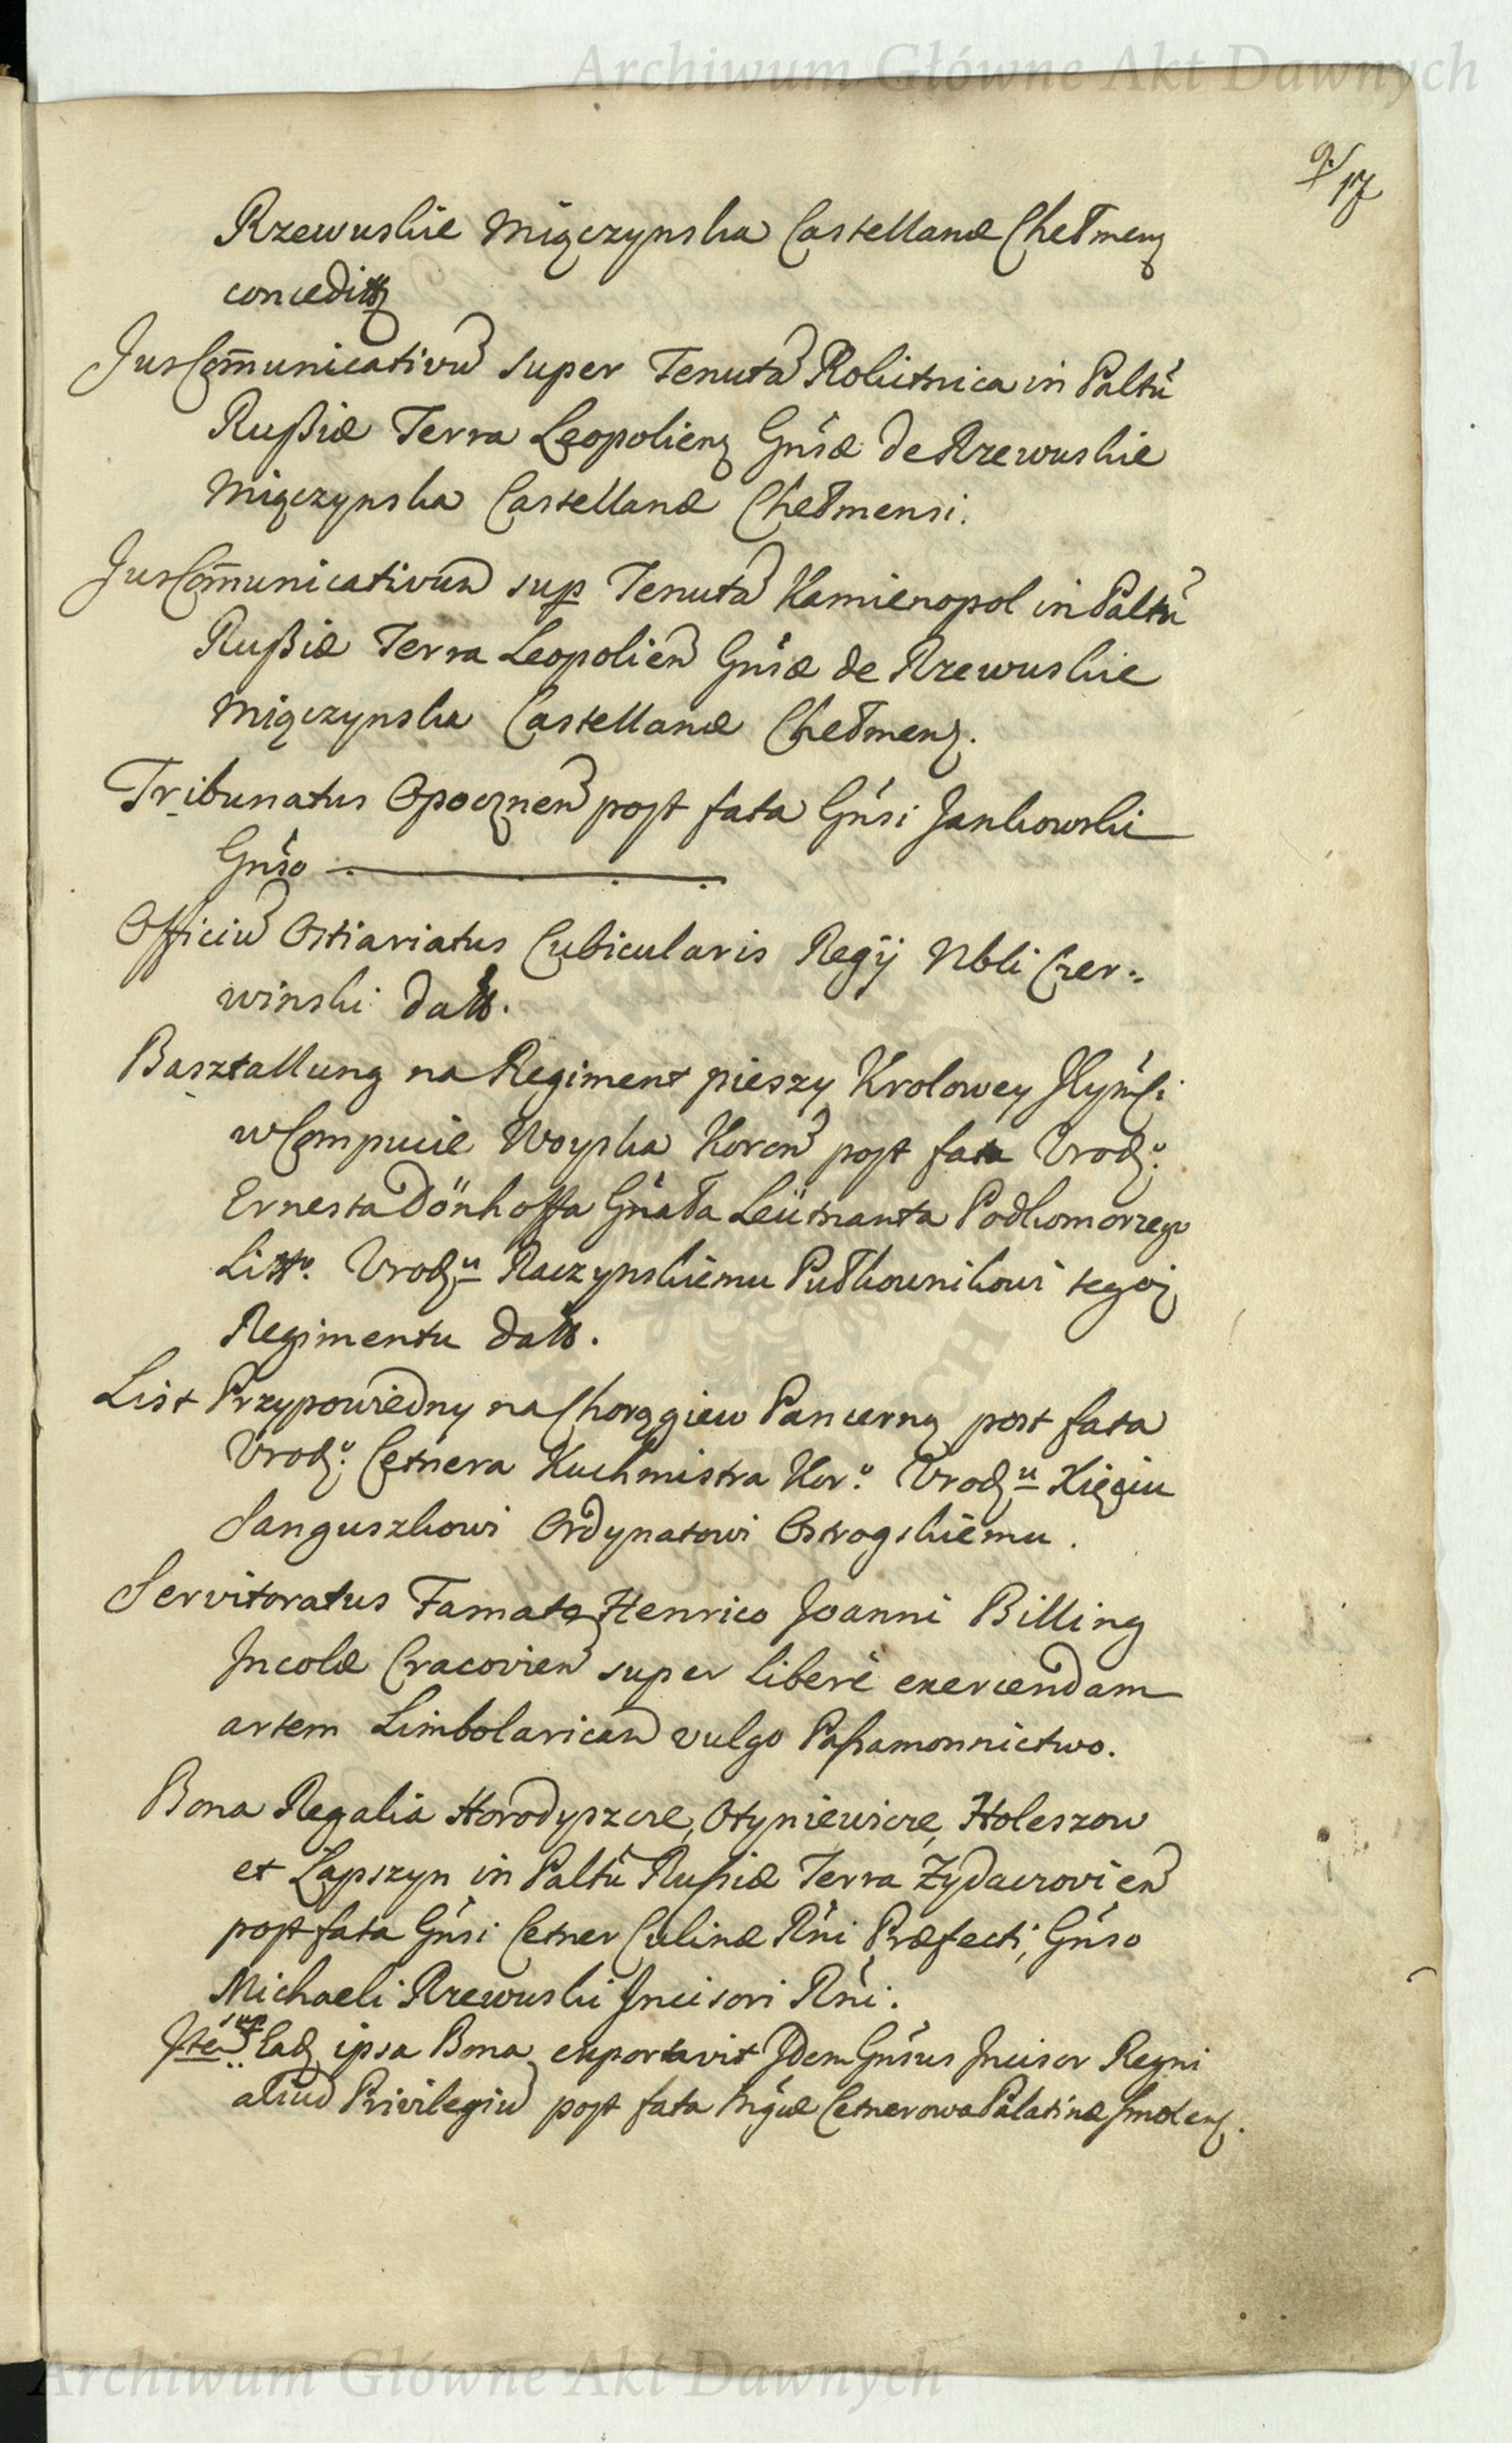 Archiwum Główne Akt Dawnych
9/17
Rzewuskie Miączynska Castellanæ Chełmenſ
conceditr
Jus Com̄unicativũ super Tenutã Rokitnica in Paltũ
Rußiæ Terra Leopolienſ Gn̄sæ de Rzewuskie
Miączynska Castellanæ Chełmensi.
Jus Com̄unicativum sup Tenutã Kamienopol in Paltũ
Rußiæ Terra Leopolien̄ Gn̄sæ de Rzewuskie
Miączynska Castellanæ Chełmenſ.
Tribunatus Opocznen̄ post fata Gn̄si Jankowski
Gn̄so
Officiũ Ostiariatus Cubicularis Regÿ Nbli Czer:
winski datr.
Basztallung na Regiment pieszy Krolowey JKymſi
w Compucie Woyska Koron̄ post fata Urodzo:
Ernesta Dönhoffa Gn̄ała Leütnanta Podkomorzego
Litto. Urodzu Raczynskiemu Pułkownikowi tegoż
Regimentu datr.
List Przypowiedny na Chorągiew Pancerną post fata
Urodzo: Cetnera Kuchmistra Koro. Urodzu Xięciu
Sanguszkowi Ordynatowi Ostrogskiemu.
Servitoratus Famato Henrico Joanni Billing
Incolæ Cracovien̄ super liberè exercendam
artem Limbolaricam vulgo Paßamonnictwo.
Bona Regalia Horodyszcze, Otyniewicze, Holeszow
et Łapszyn in Paltũ Rußiæ Terra Zydaczovien̄
post fata Gn̄si Cetner Culinæ Rn̄i Præfecti, Gn̄so
Michaeli Rzewuski Incisori Rn̄i.
Itẽ sup Eadſ ipsa Bona exportavit Idem Gn̄sus Incisor Regni
aliud Privilegiũ post fata Mgn̄æ Cetnerowa Palatinæ Smolenſ.
Archiwum Główne Akt Dawnych